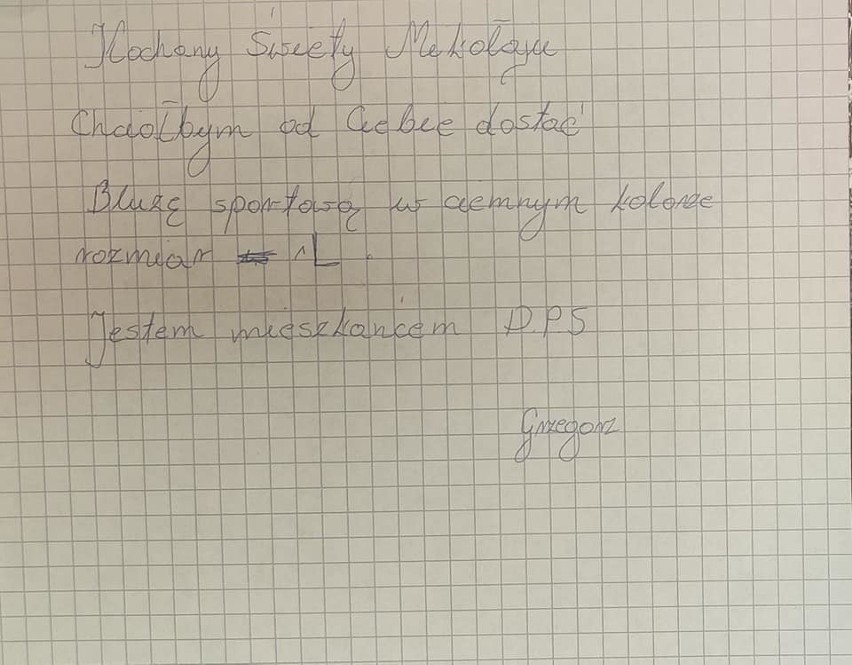 Kochany Święty Mikołaju
Chciałbym od Ciebie dostać
Bluzę sportową w ciemnym kolorze
rozmiar L.
Jestem mieszkańcem D.P.S
Grzegorz